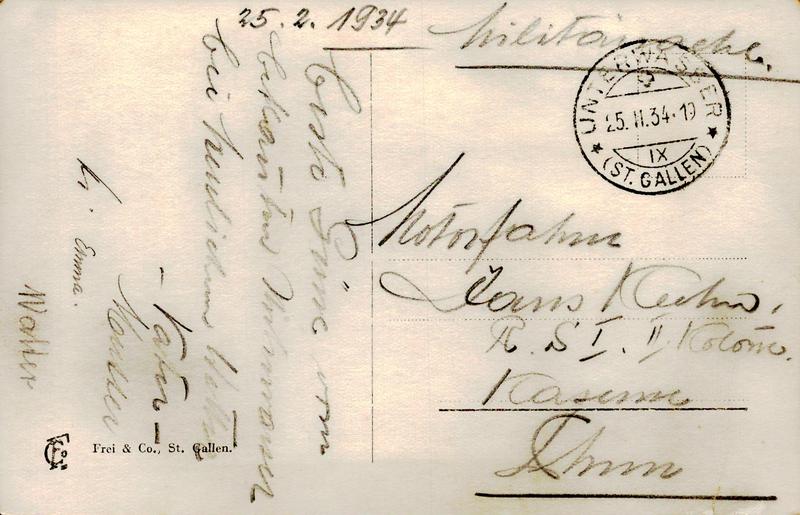 25.2.1934
Militärsache.
UNTERWASSER
25.II.34-19
IX
(ST. GALLEN)
Beste Grüsse vom
bekannten
bei herrlichem Wetter
- Vater -
Mutter
Emma.
Walter
Motorfahrer
Hans
R. S I. II. Kolonne.
Kaserne
Thun
Frei & Co., St. Gallen.